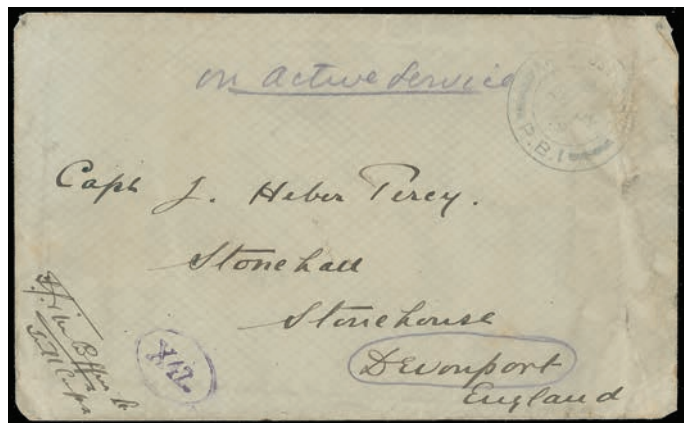 on active service
P.B.1
Capt J. Heber Percy.
Stonehall
Stonehouse
Devonport
England